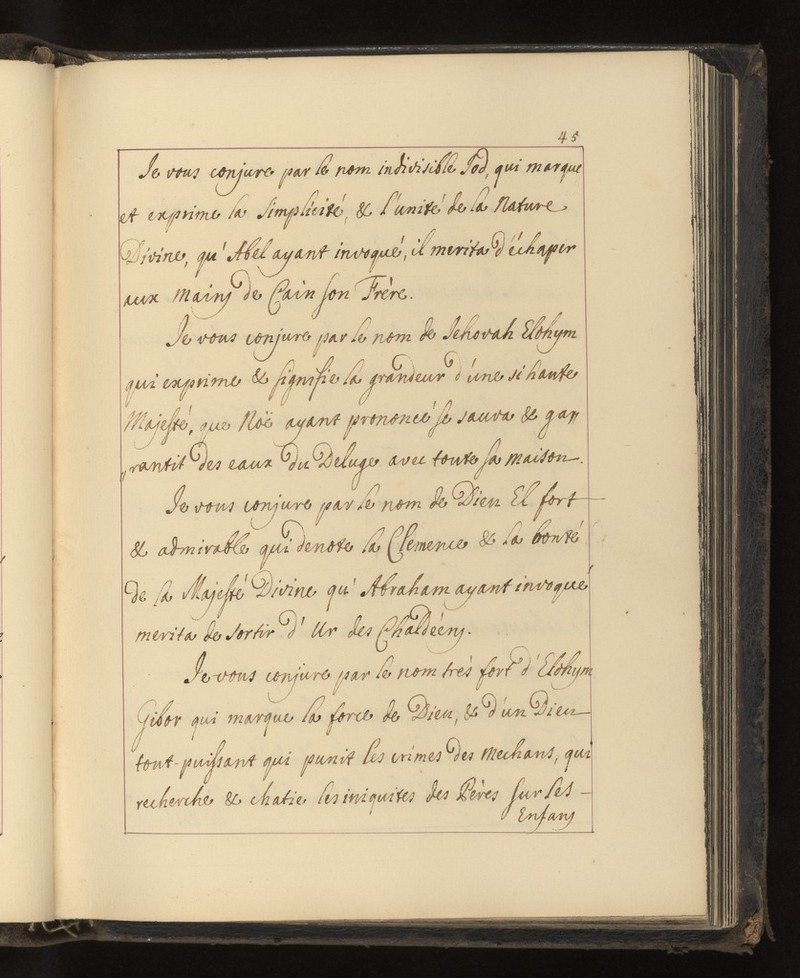 45
Je vous conjure par le nom indivisible Jod, qui marque
et exprime la Simplicité, & l'unité de la Nature
Divine, qu'Abel ayant invoqué, il merita d'échaper
aux mains de Cain son Frère.
Je vous conjure par le nom de Jehovah Elohym
qui exprime & signifie la grandeur d'une si haute
Majesté, que Noë ayant prononcé se sauva & gar
rantit des eaux du Deluge avec toute sa maison.
Je vous conjure par le nom de Dieu El fort
& admirable qui denote la Clemence & la bonté
de la Majesté Divine qu'Abraham ayant invoqué
merita de sortir d'Ur des Chaldéens.
Je vous conjure par le nom trés fort d'Elohym
Gibor qui marque la force de Dieu, & d'un Dieu
tout-puissant qui punit les crimes des mechans, qui
recherche & chatie les iniquites des Pères sur les
Enfans